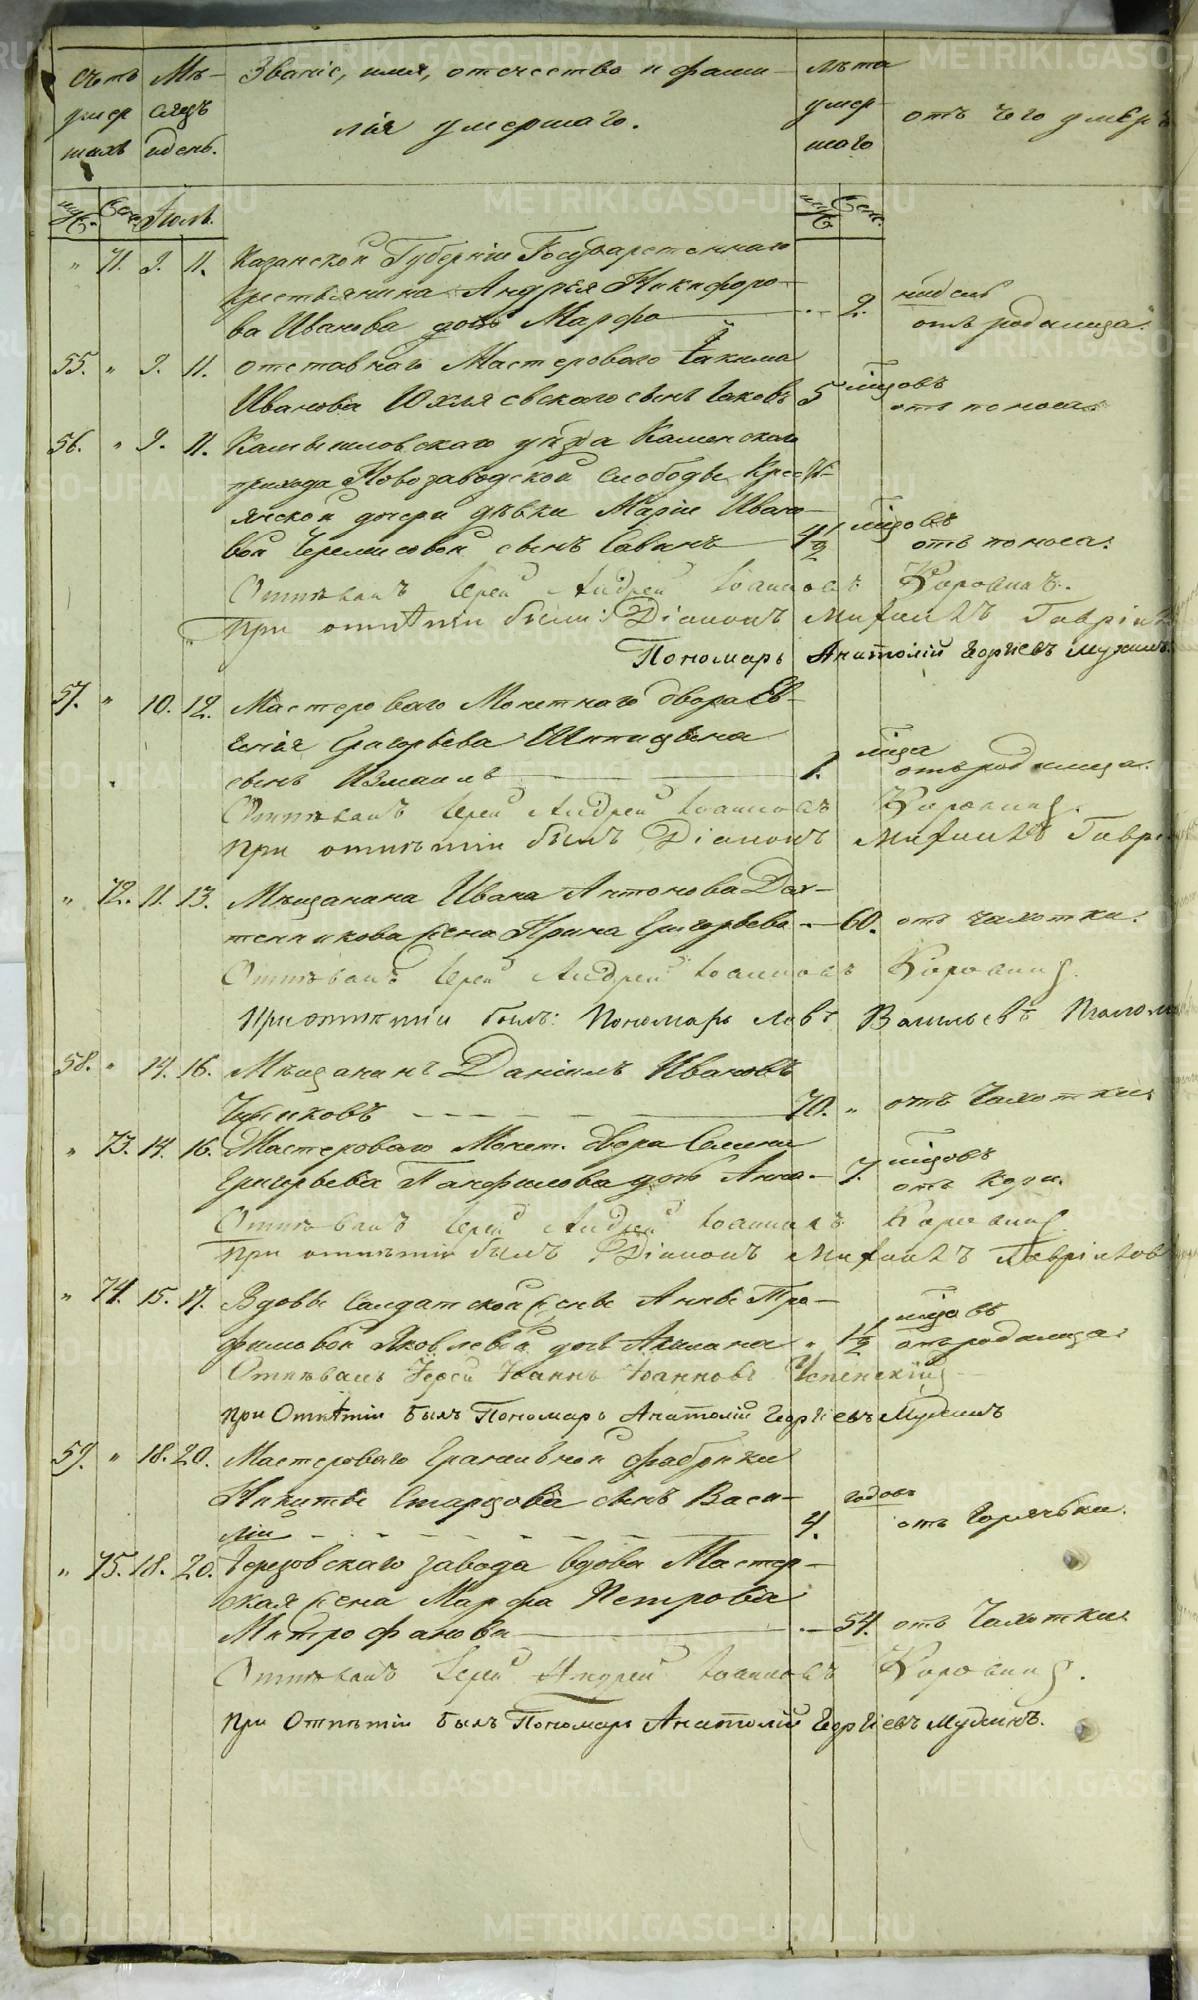 Счетъ Мѣ- Званіе, имя, отечество и фами- лѣта
умер сяцъ лія умершаго. умер отъ чего умеръ
шихъ и день. шаго
муж. жен. Іюль. муж. жен.
" 71. 9. 11. Казанской Губерніи Государственнаго
крестьянина Андрея Никифоро-
ва Иванова дочь Марфа 2. недѣль отъ родимца.
55. " 9. 11. отставнаго Мастероваго Іакима
Иванова сынъ Іаковъ 5 мцовъ отъ поноса.
56. " 9. 11. Камышловскаго уѣзда Каменскаго
прихода Новозаводской слободы Крест-
янской дочери дѣвки Маріи Ивано-
вой Черемисовой сынъ Саванъ 4 1/2 мцовъ отъ поноса.
Отпѣвалъ Іерей Андрей Іоанновъ Коровинъ.
При отпѣтіи были: Діаконъ Михаилъ Гаврил
Пономарь Анатолій Георгіевъ Мухинъ.
57. " 10. 12. Мастероваго Монетнаго двора Ев-
генія Григорьева Шипицына
сынъ Измаилъ 1. мца отъ родимца.
Отпѣвалъ Іерей Андрей Іоанновъ Коровинъ.
При отпѣтіи былъ Діаконъ Михаилъ Гавр
" 72. 11. 13. Мѣщанина Ивана Антонова
жена Ирина Григорьева 60. отъ чахотки.
Отпѣвалъ Іерей Андрей Іоанновъ Коровинъ.
При отпѣтіи былъ: Пономарь Левъ Васильевъ
58. " 14. 16. Мѣщанинъ Даніилъ Ивановъ
70. " отъ Чахотки.
" 73. 14. 16. Мастероваго Монет. двора Семена
Григорьева Панфилова дочь Анна 7. мцовъ отъ кори.
Отпѣвалъ Іерей Андрей Іоанновъ Коровинъ.
При отпѣтіи былъ Діаконъ Михаилъ Гавриловъ
" 74. 15. 17. Вдовы Солдатской жены Анны Тро-
фимовой Яковлевой дочь 1 1/2 мцовъ отъ родимца.
Отпѣвалъ Іерей Іоаннъ Іоанновъ Успенскій
При Отпѣтіи былъ Пономарь Анатолій Георгіевъ Мухинъ
59. " 18. 20. Мастероваго Гранильной фабрики
Никиты Старцова сынъ Васи-
лій 4. годовъ отъ Горячки.
" 75. 18. 20. Березовскаго завода вдова Мастер-
ская жена Марфа Петрова
Митрофанова 54. отъ Чахотки.
Отпѣвалъ Іерей Андрей Іоанновъ Коровинъ.
При Отпѣтіи былъ Пономарь Анатолій Георгіевъ Мухинъ.